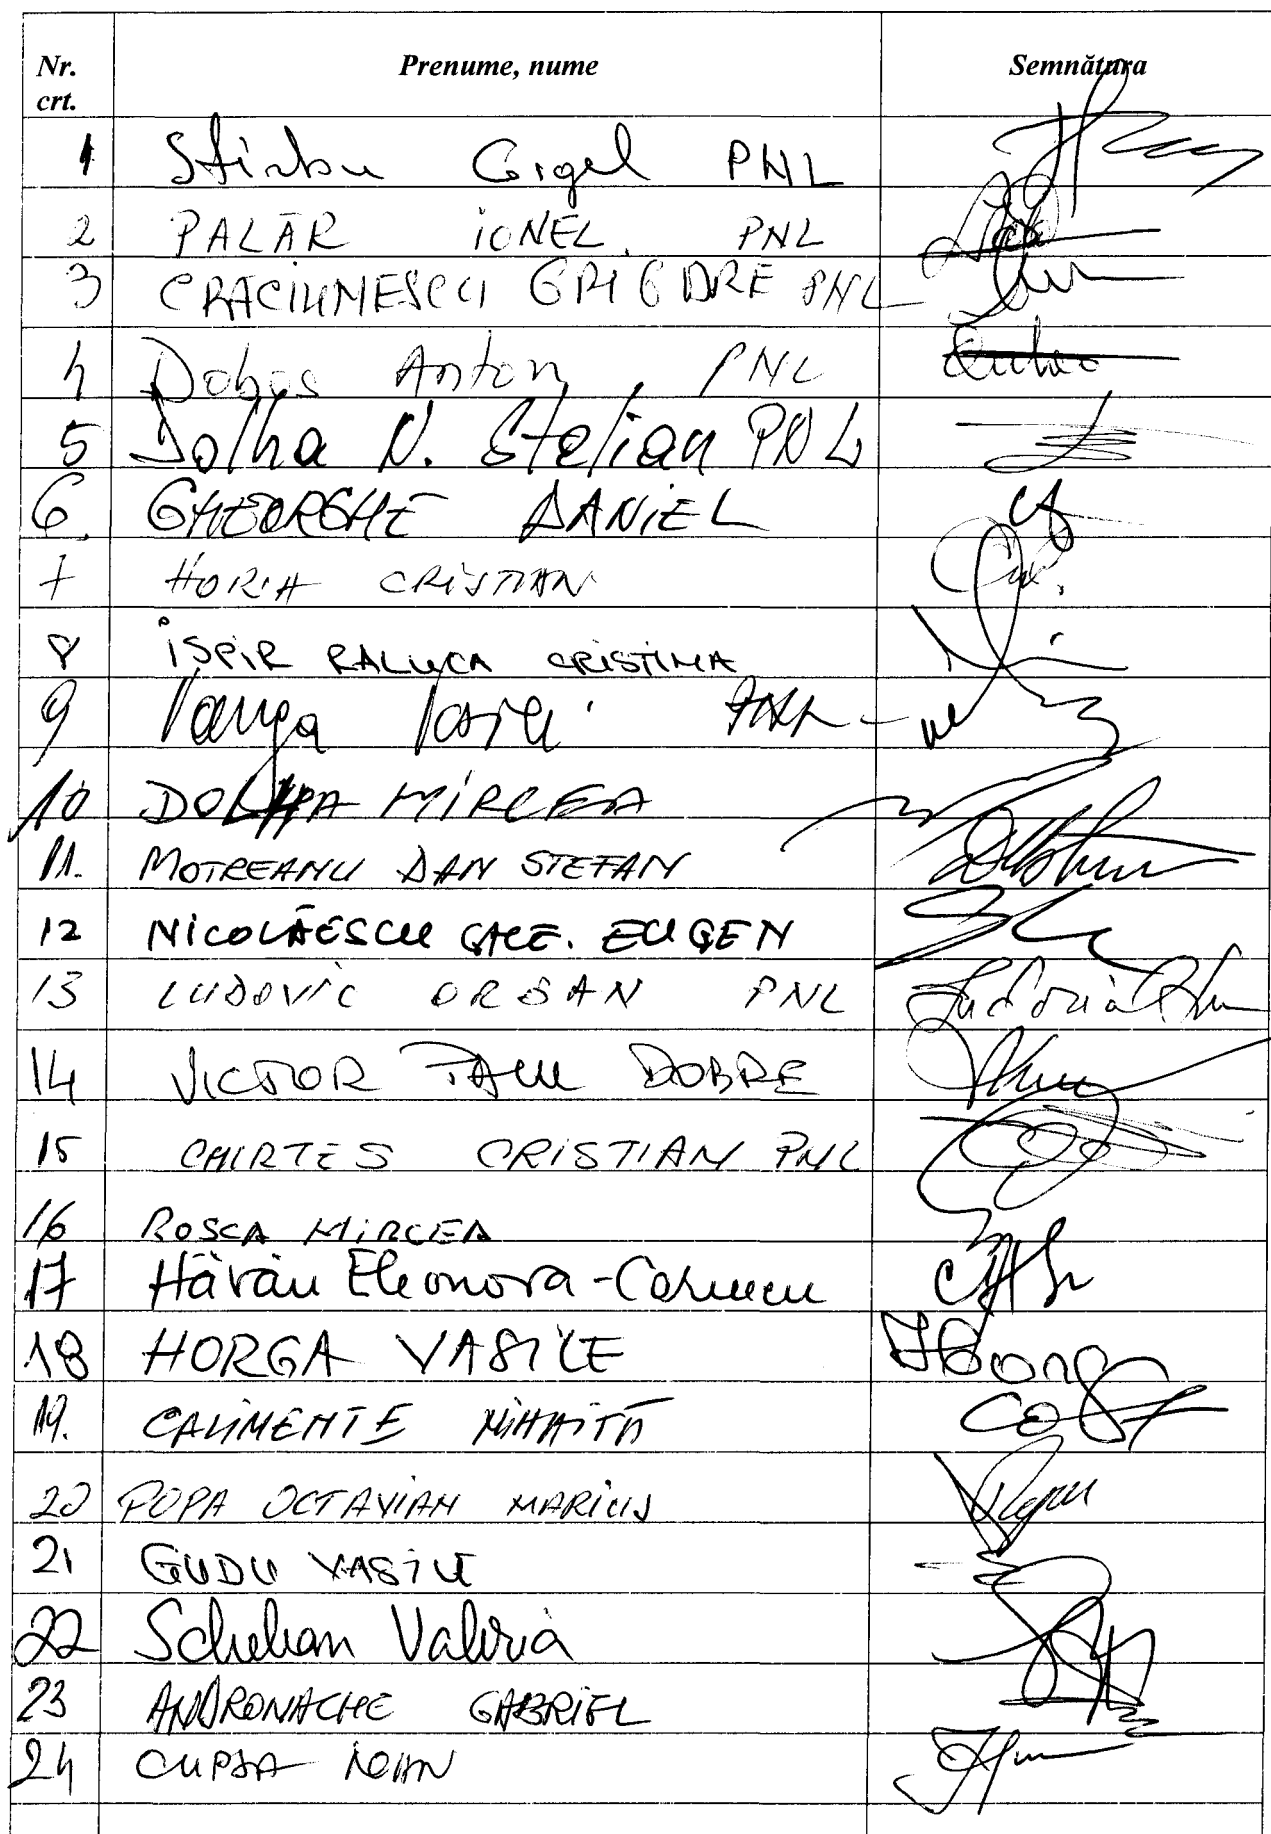 Nr. crt. Prenume, nume Semnătura
1 Stirbu Gigel PNL
2 PALĂR IONEL PNL
3 CRACIUNESCU GRIGORE PNL
4 Dobos Anton PNL
5 Dolha N. Stelian PNL
6. GHEORGHE DANIEL
7 HORIA CRISTIAN
8 ISPIR RALUCA CRISTINA
9 Varga Vasile PNL
10 DOLHA MIRCEA
11. MOTREANU DAN STEFAN
12 NICOLĂESCU GHE. EUGEN
13 LUDOVIC ORBAN PNL
14 VICTOR PAUL DOBRE
15 CHIRTES CRISTIAN PNL
16 ROSCA MIRCEA
17 Hărău Eleonora-Carmen
18 HORGA VASILE
19. CALIMENTE MIHĂIȚĂ
20 POPA OCTAVIAN MARIUS
21 GUDU VASILE
22 Schelean Valeria
23 ANDRONACHE GABRIEL
24 CUPSA IOAN